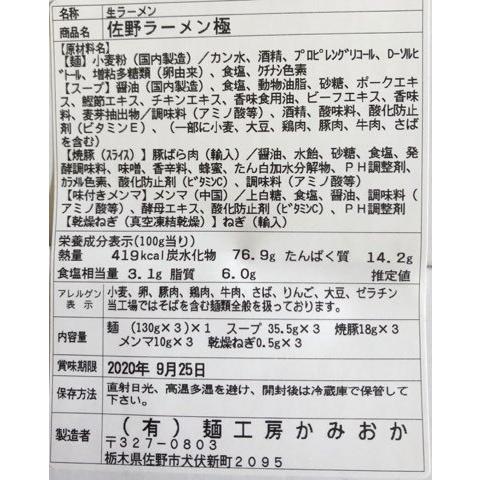 名称 生ラーメン
商品名 佐野ラーメン極
【原材料名】
【麺】小麦粉（国内製造）／カン水、酒精、プロピレングリコール、D-ソルビ
ﾄﾞｰﾙ、増粘多糖類（卵由来）、食塩、ｸﾁﾅｼ色素
【スープ】醤油（国内製造）、食塩、動物油脂、砂糖、ポークエキ
ス、鰹節エキス、チキンエキス、香味食用油、ビーフエキス、香味
料、麦芽抽出物／調味料（アミノ酸等）、酒精、酸味料、酸化防止
剤（ビタミンＥ）、（一部に小麦、大豆、鶏肉、豚肉、牛肉、さば
を含む）
【焼豚（ｽﾗｲｽ）】豚ばら肉（輸入）／醤油、水飴、砂糖、食塩、発
酵調味料、味噌、香辛料、蜂蜜、たん白加水分解物、ＰＨ調整剤、
ｶﾗﾒﾙ色素、酸化防止剤（ﾋﾞﾀﾐﾝC）、調味料（アミノ酸等）
【味付きメンマ】メンマ（中国）／上白糖、食塩、醤油、調味料（
アミノ酸等）、酵母エキス、酸化防止剤（ﾋﾞﾀﾐﾝC）、ＰＨ調整剤
【乾燥ねぎ（真空凍結乾燥）】ねぎ（輸入）
栄養成分表示(100g当り)
熱量 419kcal 炭水化物 76.9g たんぱく質 14.2g
食塩相当量 3.1g 脂質 6.0g 推定値
アレルゲン表示 小麦、卵、豚肉、鶏肉、牛肉、さば、りんご、大豆、ゼラチン
当工場ではそばを含む麺類全般を扱っております。
内容量 麺（130g×3）×1 スープ 35.5g×3 焼豚18g×3
メンマ10g×3 乾燥ねぎ0.5g×3
賞味期限 2020年 9月25日
保存方法 直射日光、高温多湿を避け、開封後は冷蔵庫で保管して
下さい。
製造者 （有）麺工房かみおか
〒327-0803
栃木県佐野市犬伏新町２０９５